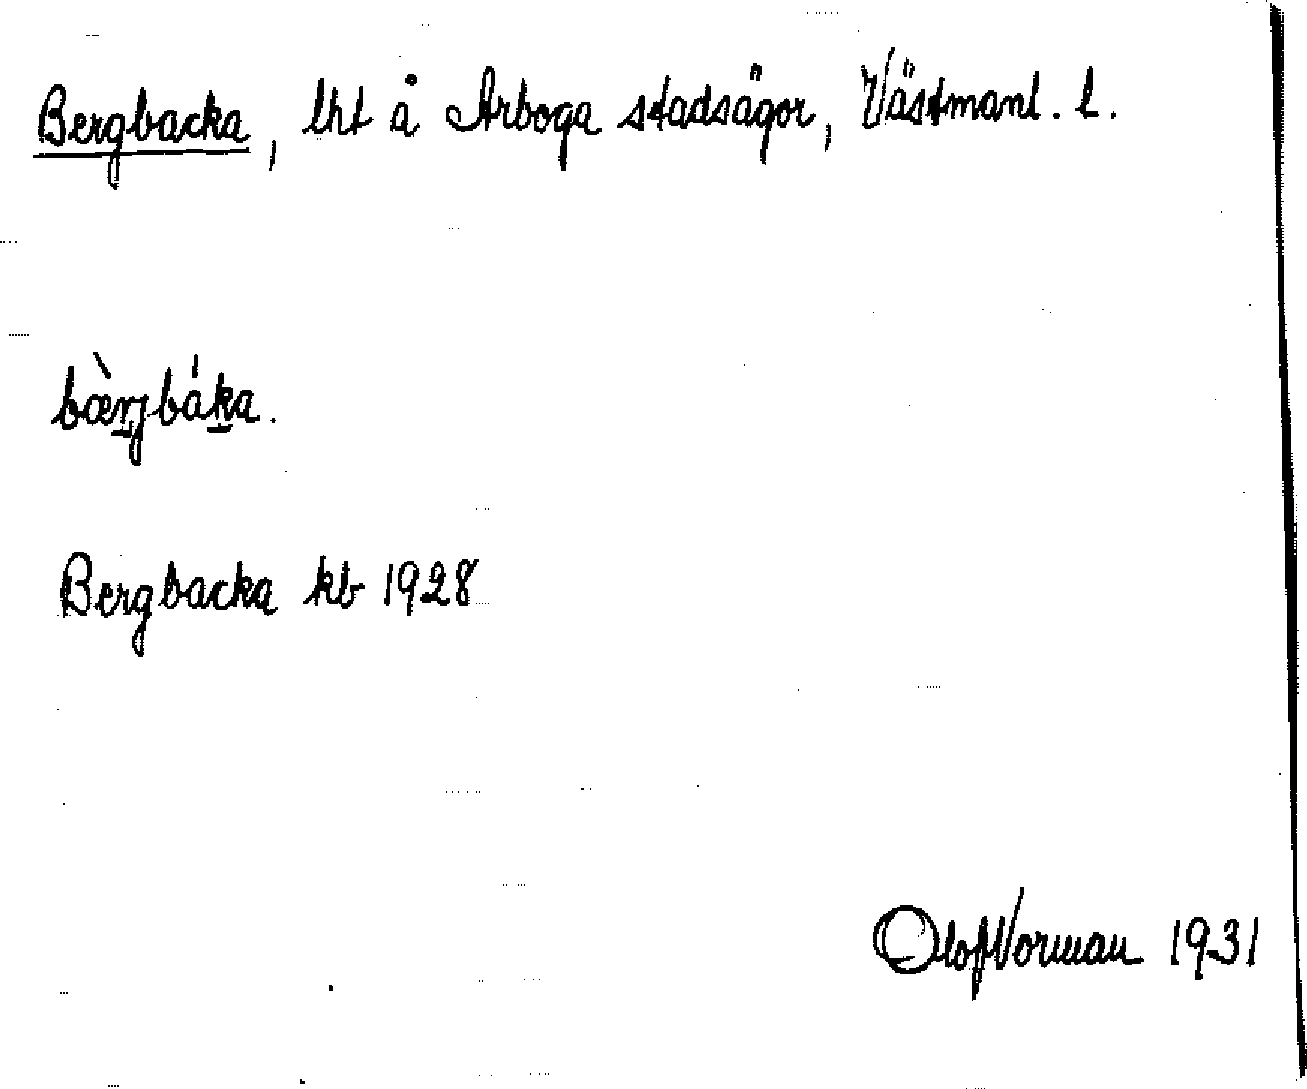 Bergbacka, lht å Arboga stadsägor, Västmanl. l.
bæ̀rjbáka.
Bergbacka kb 1928
Olof Norman 1931